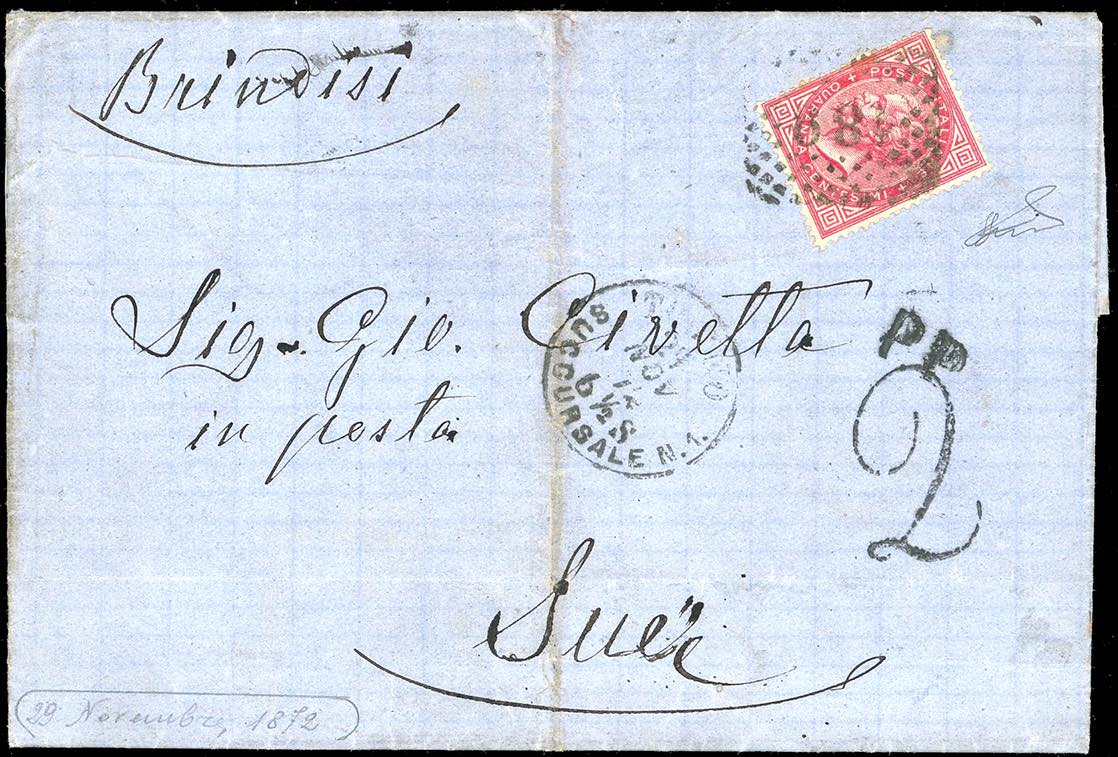 Brindisi
+ POSTE ITALIANE +
QUARANTA CENTESIMI
Sig. Gio. Civetta
in posta
PD
2
NOV
SUCCURSALE N. 1.
Suez
29 Novembre, 1872